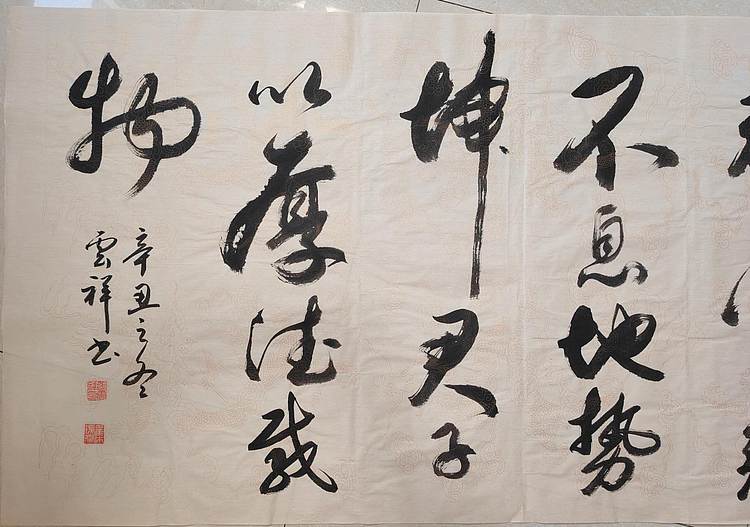 不息地勢
坤君子
以厚德载
物
辛丑之冬
雲祥书